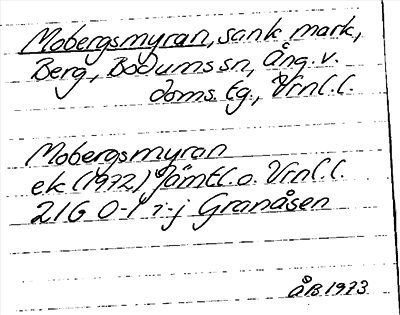 Mobergsmyran, sank mark,
Berg, Bodums sn, Ång. v.
doms. tg., Vrnl.l.
Mobergsmyran
ek (1972) Jämtl.o. Vrnl.l.
21G 0-1 i-j Granåsen
ÅB 1973